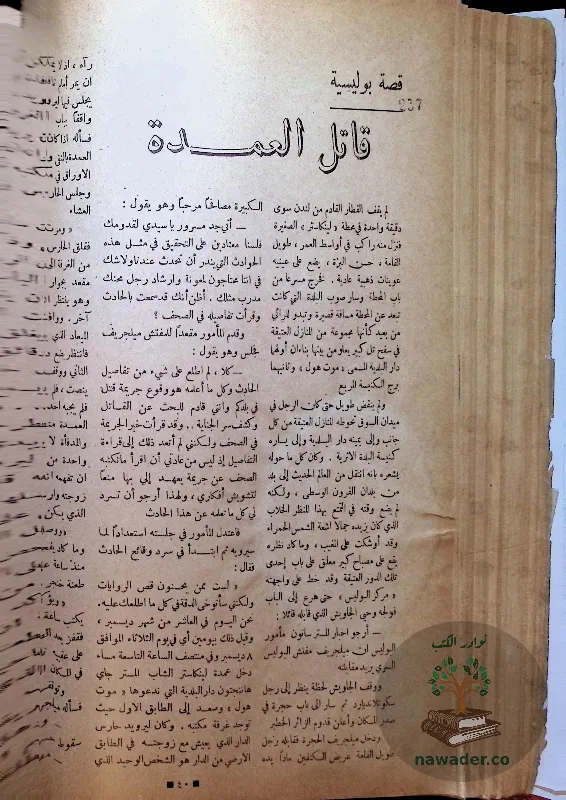 قصة بوليسية
237
قاتل العمدة
لم يقف القطار القادم من لندن سوى
دقيقة واحدة في محطة « لينكاستر » الصغيرة
فنزل منه راكب في أواسط العمر ، طويل
القامة ، حسن البزة ، يضع على عينيه
عوينات ذهبية عادية . فخرج مسرعا من
باب المحطة وسار صوب البلدة التي كانت
تبعد عن المحطة مسافة قصيرة وتبدو للرائي
من بعيد كأنها مجموعة من المنازل العتيقة
في سفح تل كبير يعلو من بينها بناءان أولهما
دار البلدية المسمى « موت هول » وثانيهما
برج الكنيسة المربع
ولم ينقض طويل حتى كان الرجل في
ميدان السوق تحوطه المنازل العتيقة من كل
جانب وإلى يمينه دار البلدية وإلى يساره
كنيسة البلدة الاثرية . وكان كل ما حوله
يشعره بأنه انتقل من العالم الحديث إلى بلد
من بلدان القرون الوسطى ، ولكنه
لم يضع وقته في التمتع بهذا المنظر الخلاب
الذي كان يزيده جمالا اشعة الشمس الحمراء
وقد أوشكت على المغيب ، وما كاد نظره
يقع على مصباح كبير معلق على باب إحدى
تلك الدور العتيقة وقد خط على واجهته
« مركز البوليس » حتى هرع إلى الباب
فولجه وحيى الجاويش الذي قابله قائلا :
— أرجو اخبار المستر سانون مأمور
البوليس ان ميلجريف مفتش البوليس
السري يريد مقابلته
ووقف الجاويش لحظة ينظر إلى رجل
سكوتلانديارد ثم سار الى باب حجرة في
صدر المكان وأعلن قدوم الزائر الخطير
ودخل ميلجريف الحجرة فقابله رجل
طويل القامة عريض الكتفين مادا يده
الكبيرة مصافحاً مرحباً وهو يقول :
— أتي جد مسرور يا سيدي لقدومك
فلسنا معتادين على التحقيق في مثل هذه
الحوادث التي يندر أن تحدث عندنا ولا شك
في اننا محتاجون لمعونة وارشاد رجل محنك
مدرب مثلك . أظن أنك قد سمعت بالحادث
وقرأت تفاصيله في الصحف ؟
وقدم المأمور مقعدا للمفتش ميلجريف
فجلس وهو يقول :
— كلا ، لم اطلع على شيء من تفاصيل
الحادث وكل ما أعلمه هو وقوع جريمة قتل
في بلدكم وانني قادم للبحث عن القاتل
وكشف سر الجناية .. وقد قرأت خبر الجريمة
في الصحف ولكنني لم أتعد ذلك إلى قراءة
التفاصيل إذ ليس من عادتي أن اقرأ ما تكتبه
الصحف عن جريمة يعهد إلي بها منعاً
لتشويش أفكاري ، ولهذا أرجو أن تسرد
لي كل ما تعلمه عن هذا الحادث
فاعتدل المأمور في جلسته استعدادا لما
سيرويه ثم ابتدأ في سرد وقائع الحادث
فقال :
« لست ممن يحسنون قص الروايات
ولكني سأتوخى الدقة في كل ما اطلعك عليه .
نحن اليوم في العاشر من شهر ديسمبر ،
وقبل ذلك بيومين أي في يوم الثلاثاء الموافق
٨ ديسمبر وفي منتصف الساعة التاسعة مساء
دخل عمدة لينكاستر الشاب المستر جاي
هاننجتون دار البلدية التي ندعوها « موت
هول » وصعد إلى الطابق الاول حيث
توجد غرفة مكتبه . وكان ليرويد حارس
الدار الذي يعيش مع زوجته في الطابق
الارضي من الدار هو الشخص الوحيد الذي
رآه ،
فسأله اذا كانت
الاوراق في
العشاء
فقلق الحارس
من الغرفة
مقعد بجوار
وهو ينظر
آخر .
الميعاد الذي
الثاني ووقف
العمدة
والمدفأة
واحدة من
زوجته
وما كاد
منذ ساعة
طعنة خنجر
يكتب ساعة
على عقبيه
في المكان
سقوط
٤٠
نوادر الكتب
nawader.co